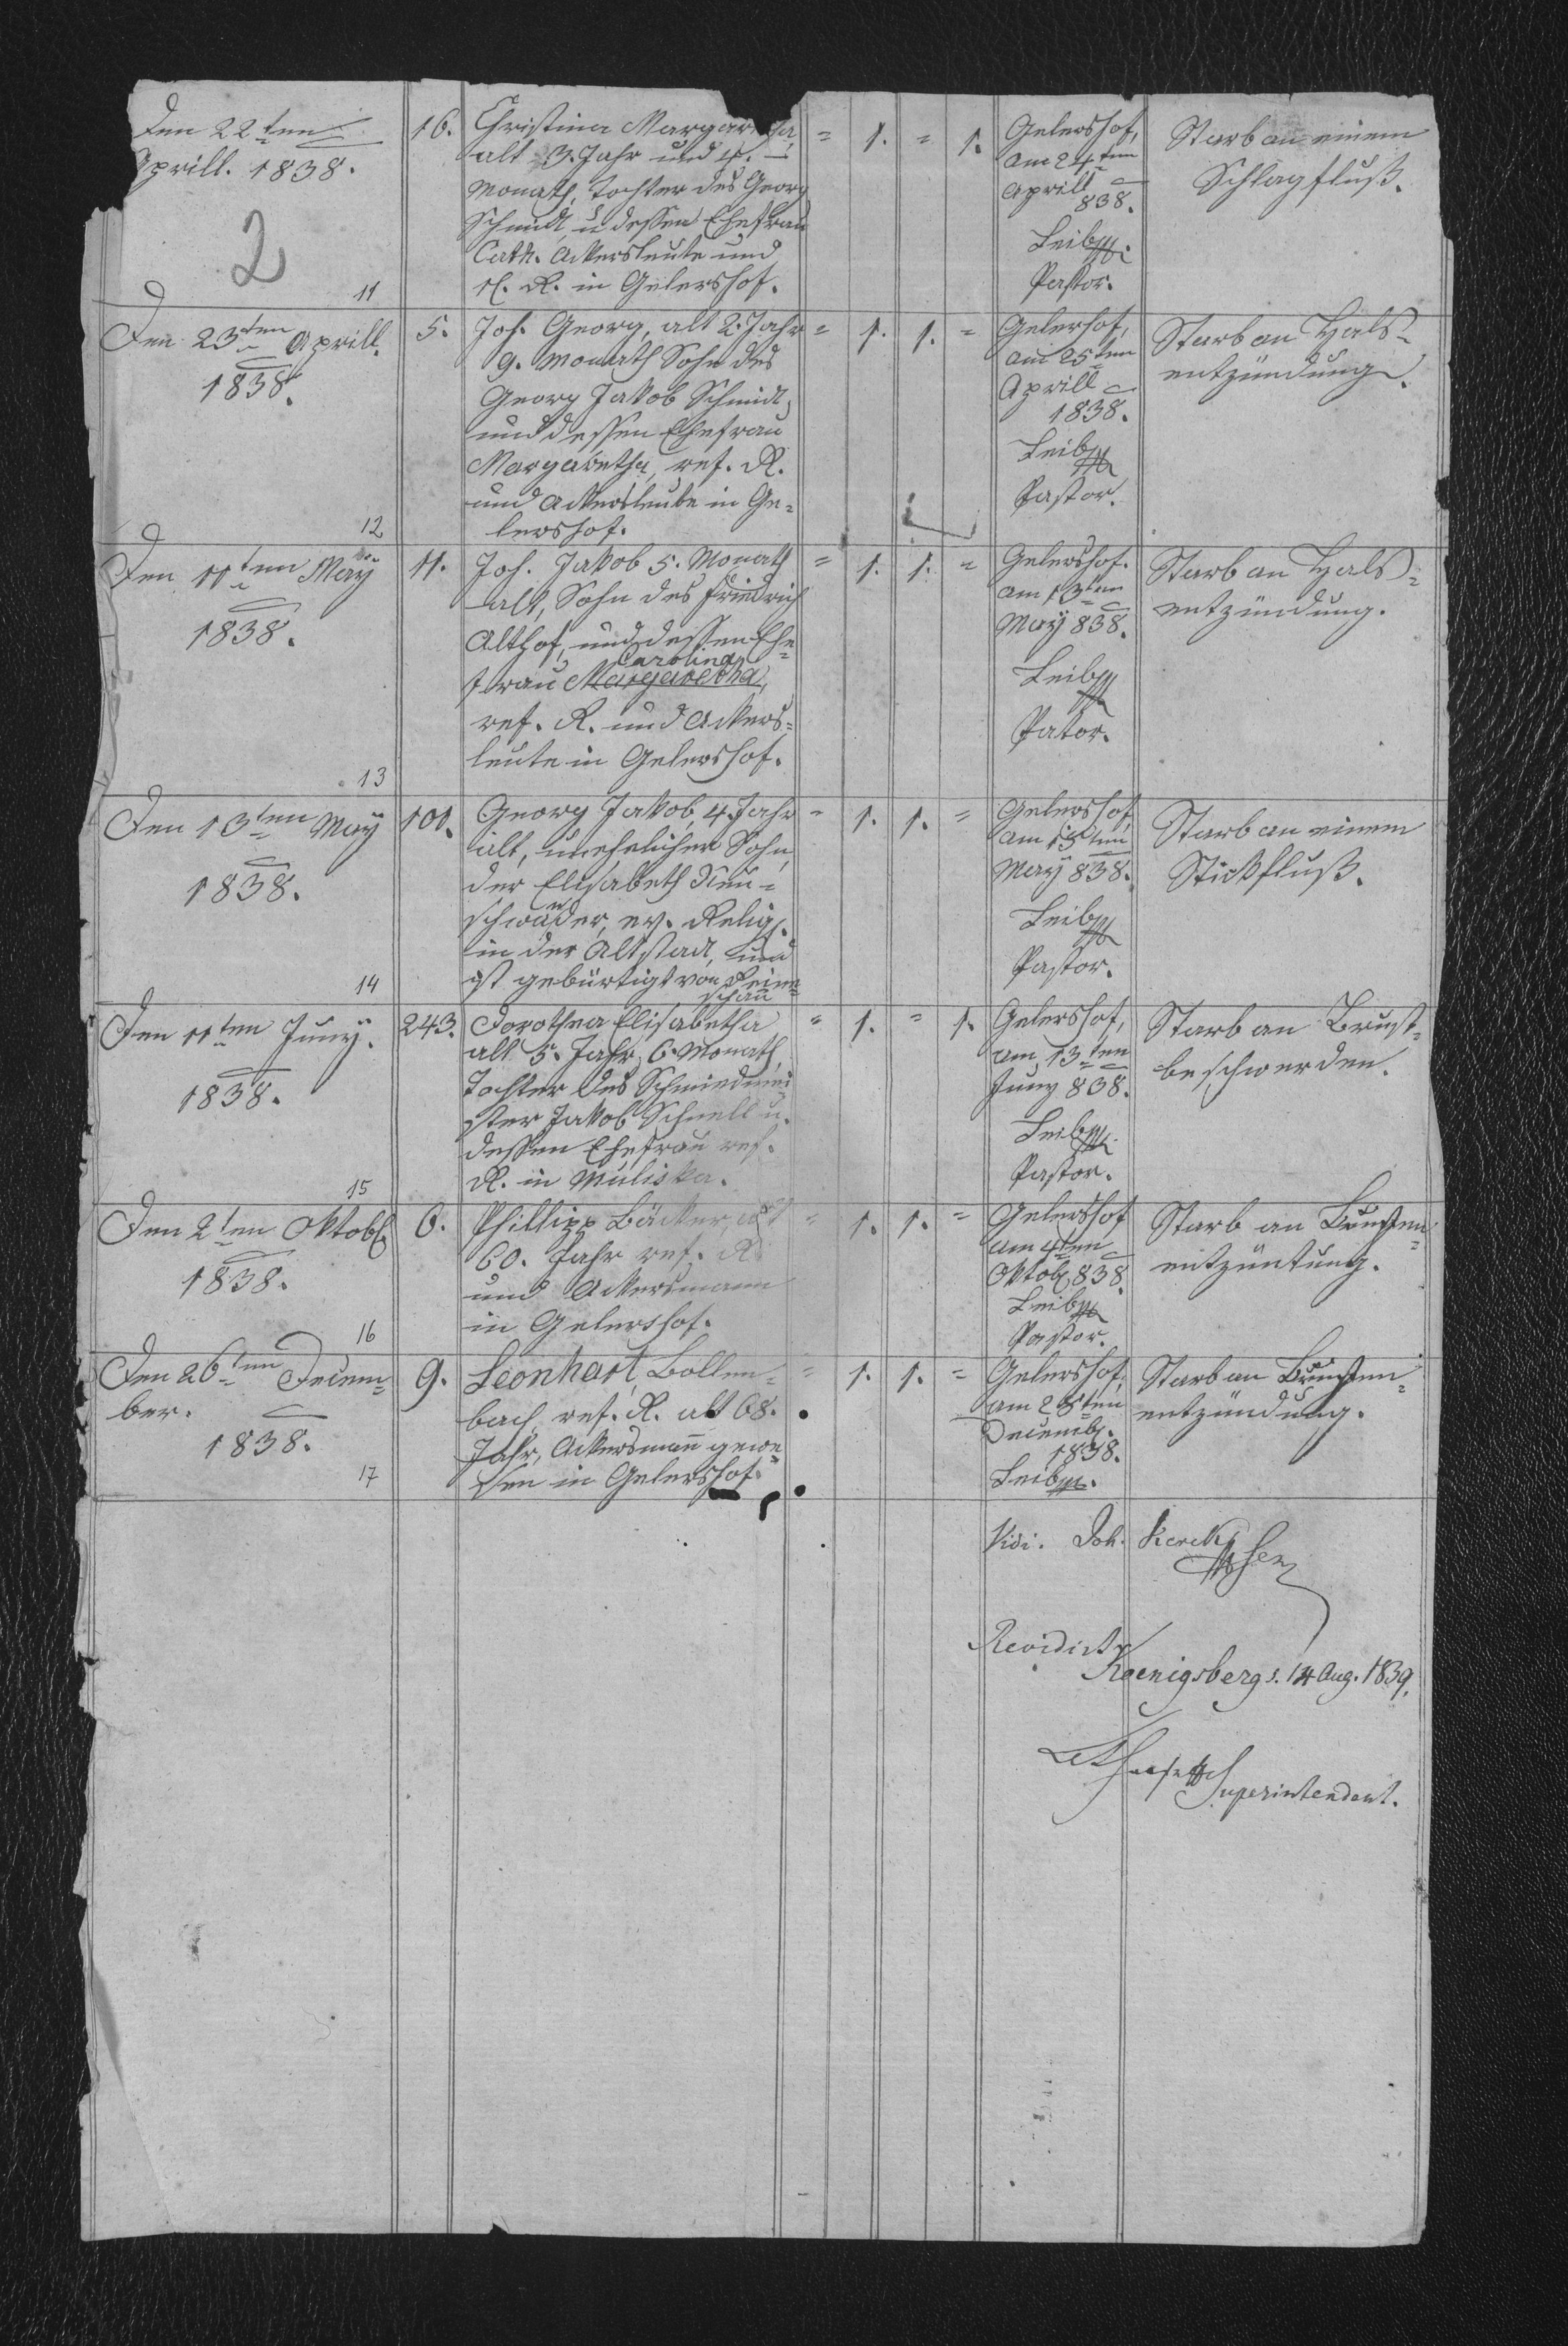 Den 22ten
Aprill. 1838.
2
11
16.
Christina Margaretha,
alt 3. Jahr und 4. –
Monath, Tochter des Georg
Schmidt, u. dessen Ehefrau
Cath. Ackersleute und
R. in Gelershof.
= 1. = 1.
Gelershof,
am 24ten
Aprill
838.
Leib
Pastor.
Starb an einem
Schlagfluß.
Den 23ten Aprill.
1838.
12
5.
Joh. Georg, alt 2. Jahr
9. Monath Sohn des
Georg Jakob Schmidt,
und dessen Ehefrau
Margaretha, ref. R.
und Ackersleute in Ge=
lershof.
= 1. 1. =
Gelershof,
am 25ten
Aprill
1838.
Leib
Pastor.
Starb an Hals=
entzündung.
Den 11ten May
1838.
13
11.
Joh. Jakob 5. Monath
alt, Sohn des Friedrich
Althof, und dessen Ehe=
Carolina
frau Margaretha,
ref. R. und Ackers=
leute in Gelershof.
= 1. 1. =
Gelershof.
am 13ten
May 838.
Leib
Pator.
Starb an Hals=
entzündung.
Den 13ten May
1838.
14
101.
Georg Jakob, 4. Jahr
alt, unehelicher Sohn
der Elisabeth Neu=
schwander, ev. Relig.
in der Altstadt, und
ist gebürtigt von Reine=
schau
= 1. 1. =
Gelershof,
am 15ten
May 838.
Leib
Pastor.
Starb an einem
Stickfluß.
Den 11ten Juny.
1838.
15
243.
Dorothea Elisabetha
alt 5. Jahr, 6. Monath,
Tochter des Schmiedmei
ster Jakob Schnell u.
dessen Ehefrau ref.
R. in Muliska.
= 1. = 1.
Gelershof,
am 13ten
Juny 838.
Leib
Pastor.
Starb an Brust=
beschwerden.
Den 2ten Oktob.
1838.
16
6.
Phillipp Bäcker, alt
60. Jahr ref. R.
und Ackersmann
in Gelershof.
= 1. 1. =
Gelershof
am 4ten
Oktob. 838.
Leib
Pastor.
Starb an Brusten=
entzüntung.
Den 26ten Decem=
ber.
1838.
17
9.
Leonhart Bollen=
bach ref. R. alt 68.
Jahr, Ackersmann gewe=
sen in Gelershof.
= 1. 1. =
Gelershof,
am 28ten
Decemb.
1838.
Leib
Starb an Brusten=
entzündung.
Vidi. Joh.
Revidirt
Koenigsberg d. 14 Aug. 1839.
Superintendent.